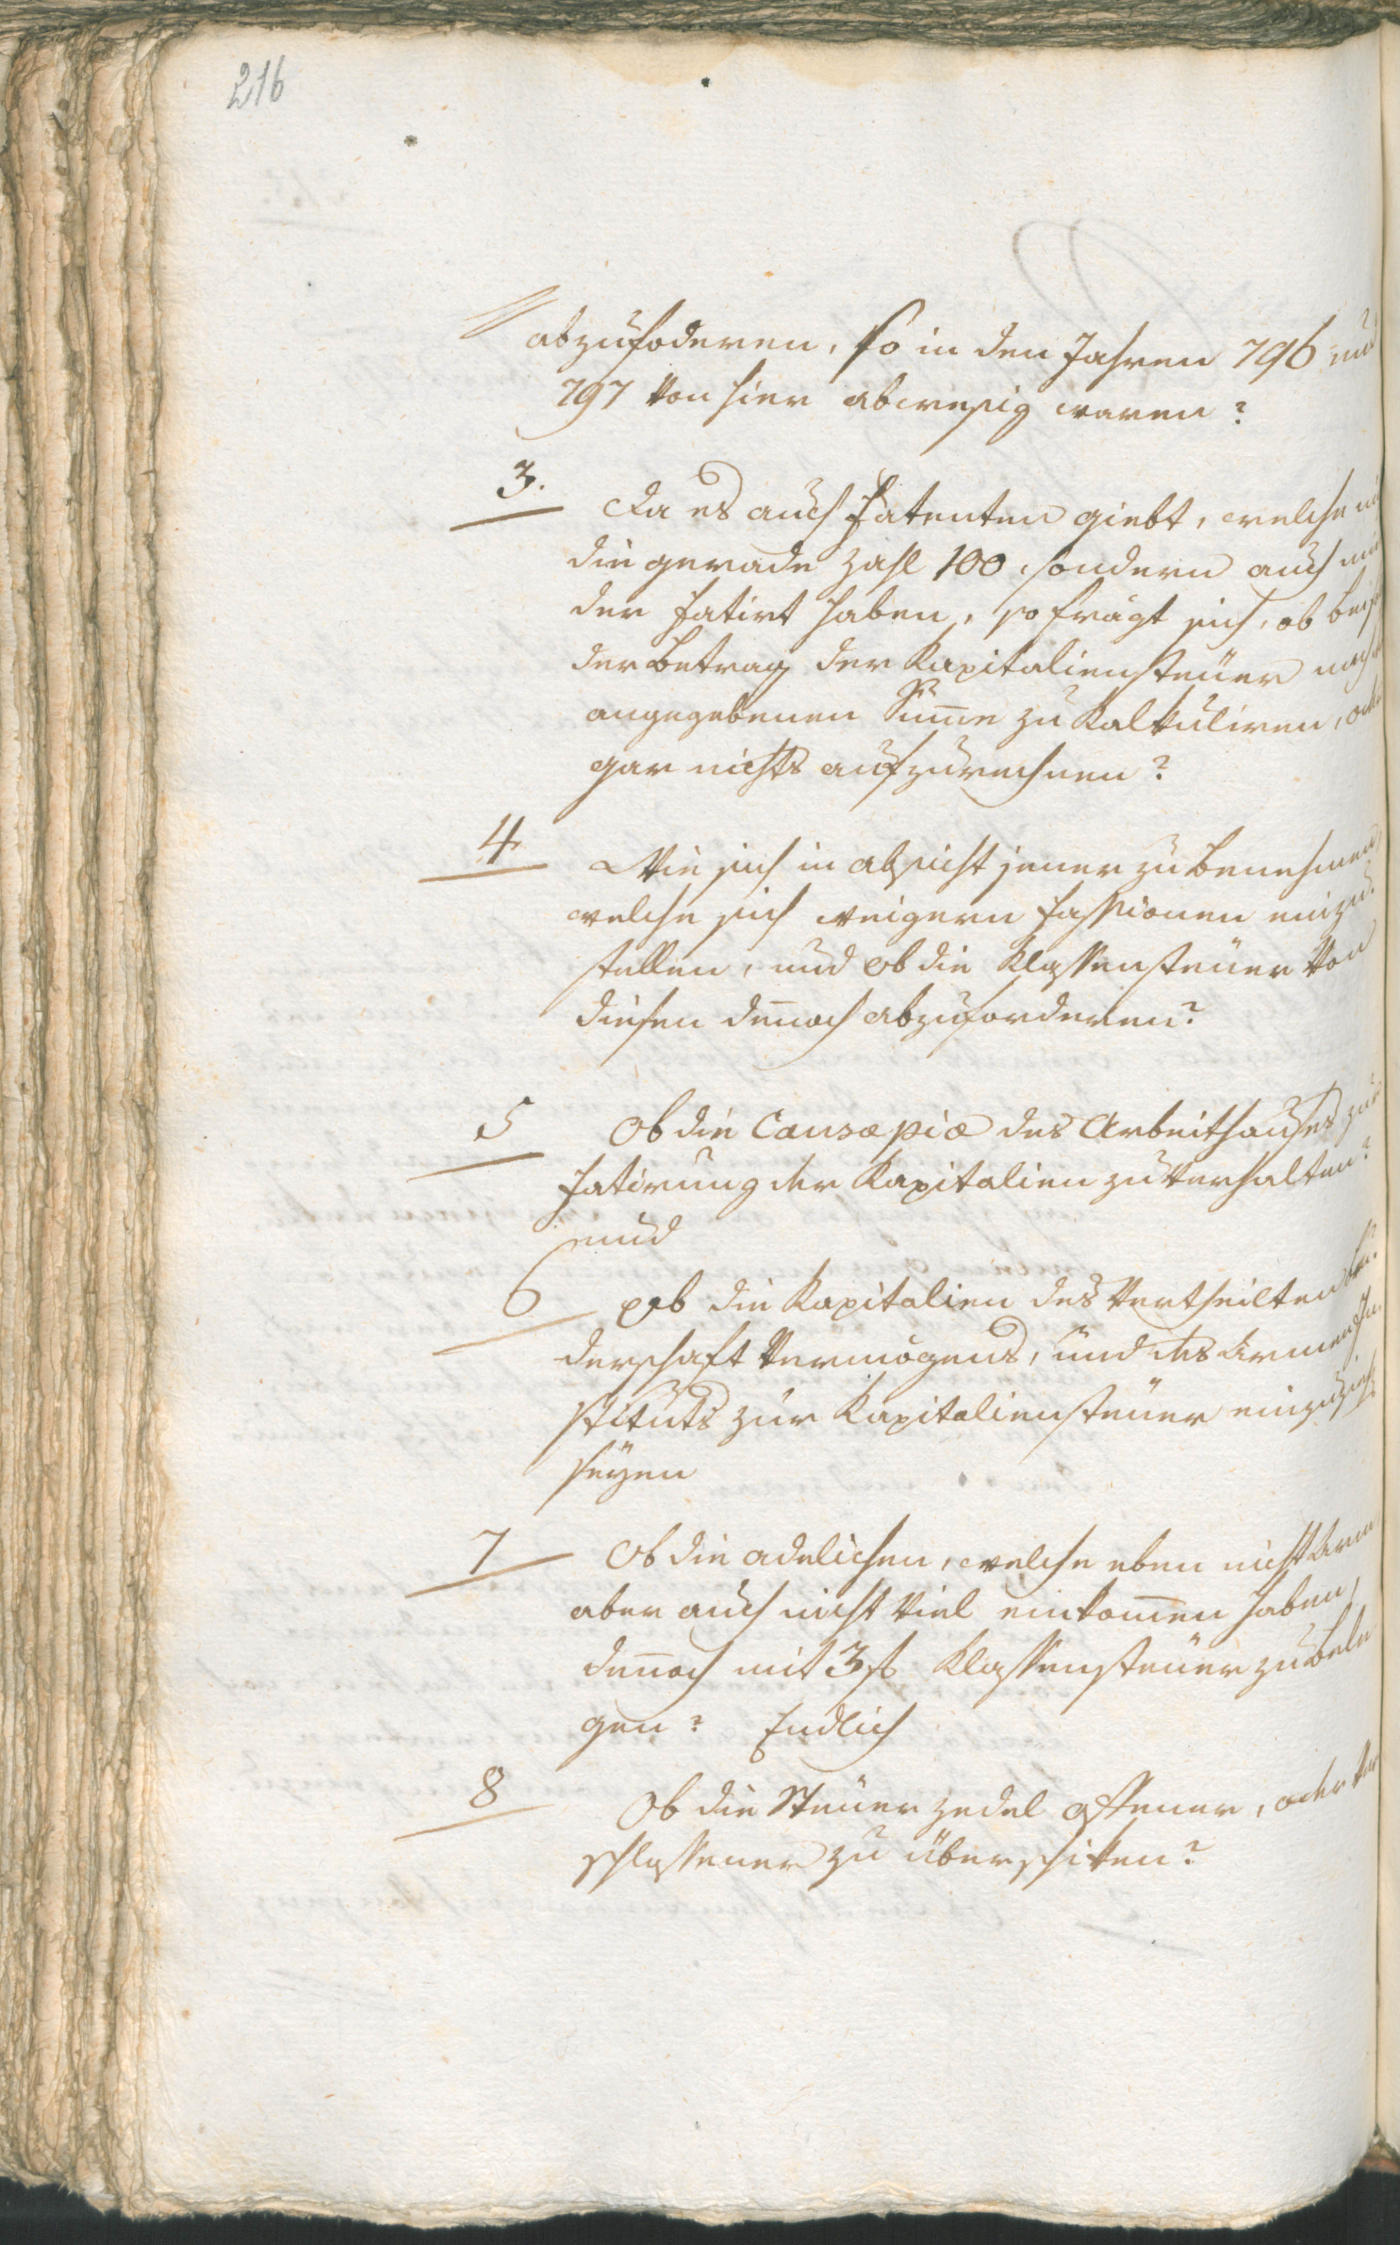 216
abzufoderen, so in den Jahren 796 und
797 von hier abwesig waren?
3. Da es auch Fatenten giebt, welche ni
die gerade Zahl 100, sondern auch min
der fatirt haben, so frägt sich, ob bei
der Betrag der Kapitaliensteuer nach
angegebenen Sum̅e zu kalkuliren, oder
gar nichts aufzurechnen?
4 Wie sich in absicht jener zu benehmen
welche sich weigern fassionen einzu
stellen, und ob die Klassensteuer von
diesen den̅och abzuforderen?
5 Ob die Causæ piæ des Arbeithauses zur
fatirung der Kapitalien zu verhalten?
und
6 ob die Kapitalien des vertheilten Bru
derschaft Vermögens, und des Armen In
stituts zur Kapitaliensteuer einzuzieh
seyen
7 Ob die adelichen, welche eben nicht Arm
aber auch nicht viel einkom̅en haben,
den̅och mit 3 f Klassensteuer zu bele
gen? Endlich
8 Ob die Steuer zedel offener, oder ver
schlossener zu überschiken?